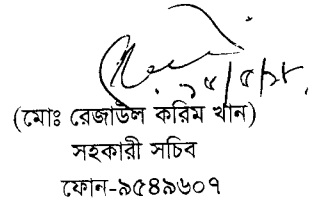 ১৫/৫/১৮
(মোঃ রেজাউল করিম খান)
সহকারী সচিব
ফোন-৯৫৪৯৬০৭